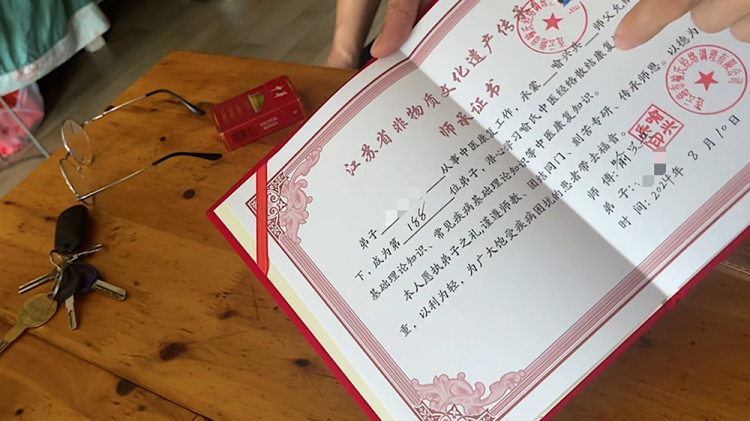 江苏省非物质文化遗产传
师承证书
弟子 从事中医康复工作，承蒙 喻兴 师父允
下，成为第 188 位弟子，潜心学习喻氏中医经络散结康复
基础理论知识、常见疾病基础理论知识等中医康复知识。
本人愿执弟子之礼，谨遵师教、团结同门、刻苦专研、传承师恩。以德为
重，以利为轻，为广大饱受疾病困扰的患者带去福音。
师傅：喻
弟子：
时间：2024年 8月10日
喻氏经络调理有限公司